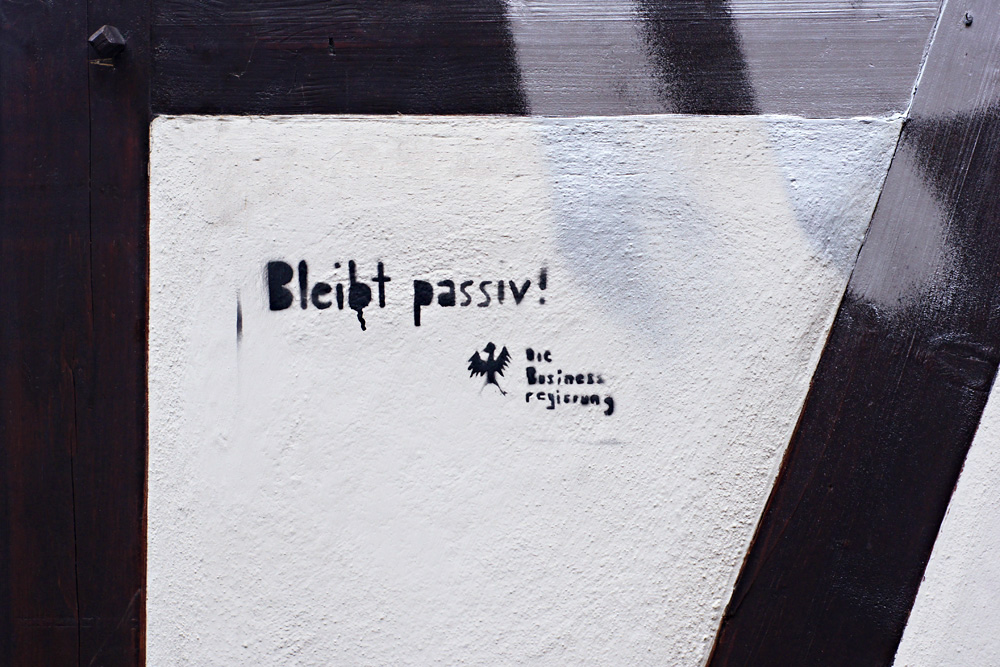 Bleibt passiv!
Die
Business
regierung